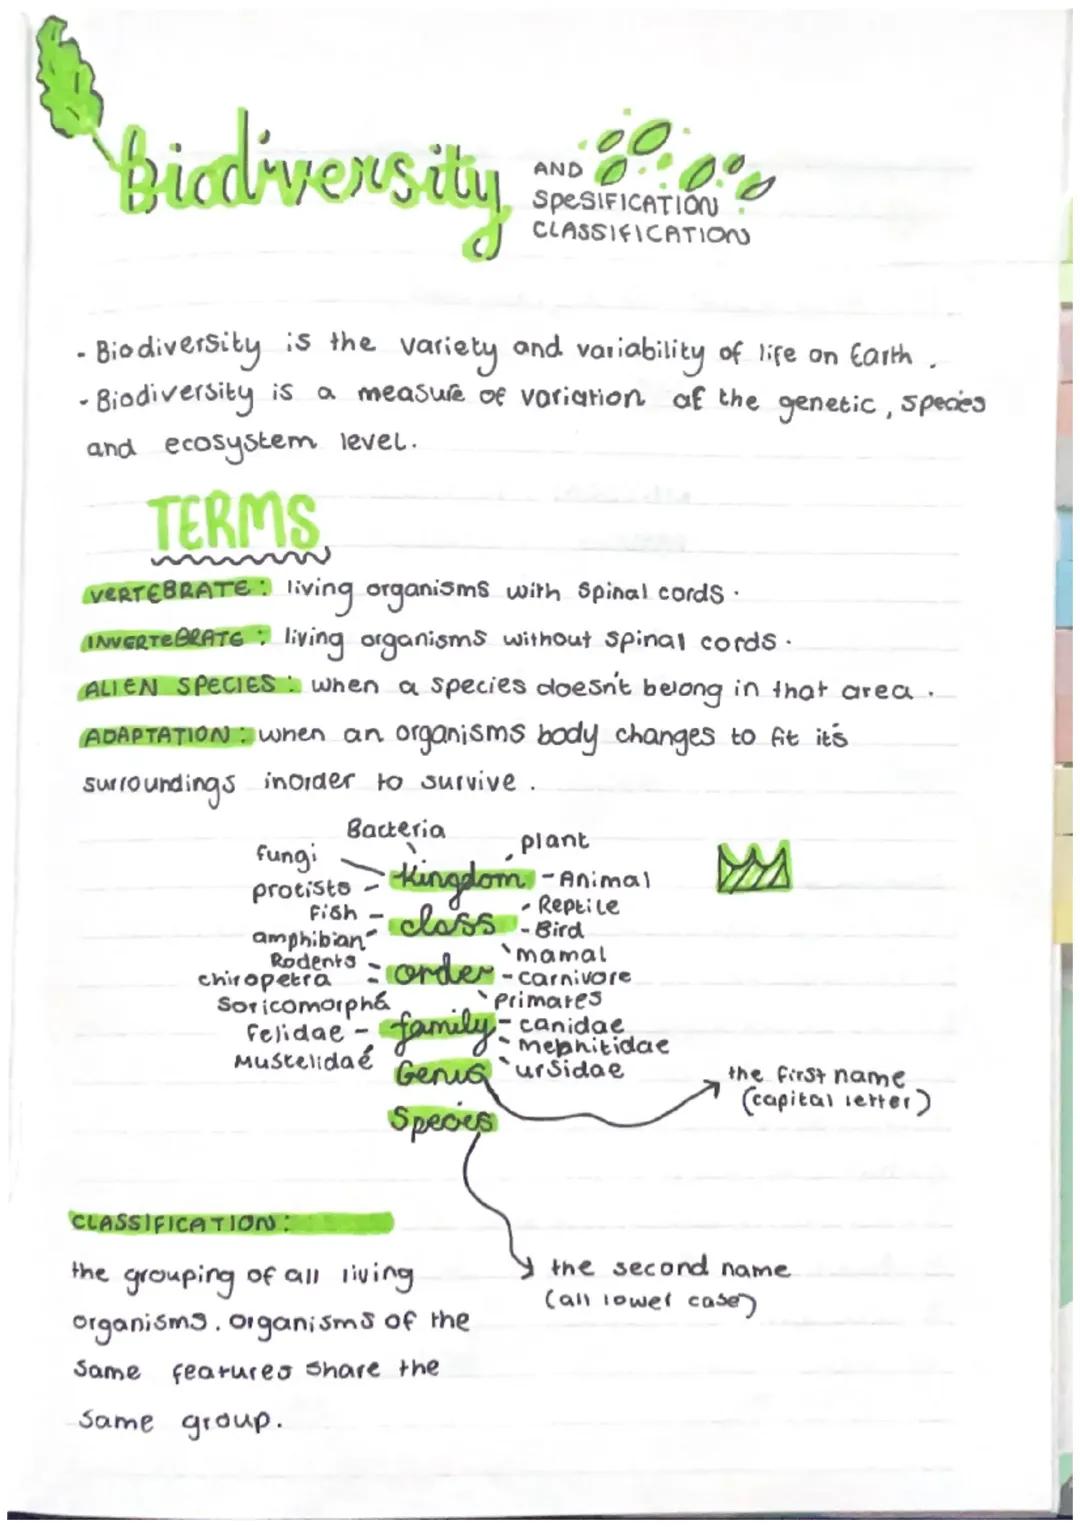 Biodiversity AND
SPeSIFICATION
CLASSIFICATION
- Biodiversity is the variety and variability of life on Earth.
- Biodiversity is a measure of variation of the genetic, species
and ecosystem level.
TERMS
VERTEBRATE: living organisms with spinal cords.
INVERTEBRATE: living organisms without spinal cords.
ALIEN SPECIES: when a species doesn't belong in that area.
ADAPTATION: when an organisms body changes to fit it's
surroundings inorder to survive.
Bacteria
plant
fungi
Kingdom - Animal
protists
Reptile
Fish - class - Bird
amphibian
mamal
Rodents
chiropetra - order - carnivore
Soricomorpha
Primates
Felidae - family - canidae
mephitidae
Mustelidae
Genus
ursidae
the first name
(capital letter)
Species
CLASSIFICATION:
the grouping of all living
the second name
(all lower case)
organisms. Organisms of the
same features share the
same group.